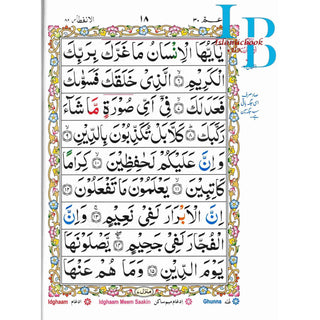 الانفطار ٨٢
١٨
عـمّ ٣٠
IB
Islamicbook
يٰۤاَيُّهَا الْاِنْسَانُ مَا غَرَّكَ بِرَبِّكَ
الْكَرِيْمِ ۝٦ الَّذِيْ خَلَقَكَ فَسَوّٰىكَ
فَعَدَلَكَ ۝٧ فِيْۤ اَيِّ صُوْرَةٍ مَّا شَآءَ
رَكَّبَكَ ۝٨ كَلَّا بَلْ تُكَذِّبُوْنَ بِالدِّيْنِ ۝٩
وَاِنَّ عَلَيْكُمْ لَحٰفِظِيْنَ ۝١٠ كِرَامًا
كَاتِبِيْنَ ۝١١ يَعْلَمُوْنَ مَا تَفْعَلُوْنَ ۝١٢
اِنَّ الْاَبْرَارَ لَفِيْ نَعِيْمٍ ۝١٣ وَاِنَّ
الْفُجَّارَ لَفِيْ جَحِيْمٍ ۝١٤ يَّصْلَوْنَهَا
يَوْمَ الدِّيْنِ ۝١٥ وَمَا هُمْ عَنْهَا
منزل ٧
Idghaam ادغام
Idghaam Meem Saakin ادغام میم ساکن
Ghunna غنہ